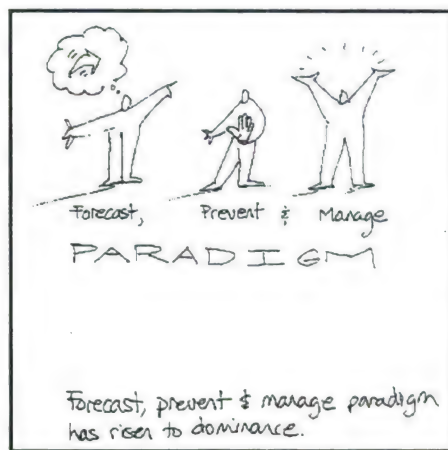 Forecast, Prevent & Manage
PARADIGM
Forecast, prevent & manage paradigm
has risen to dominance.